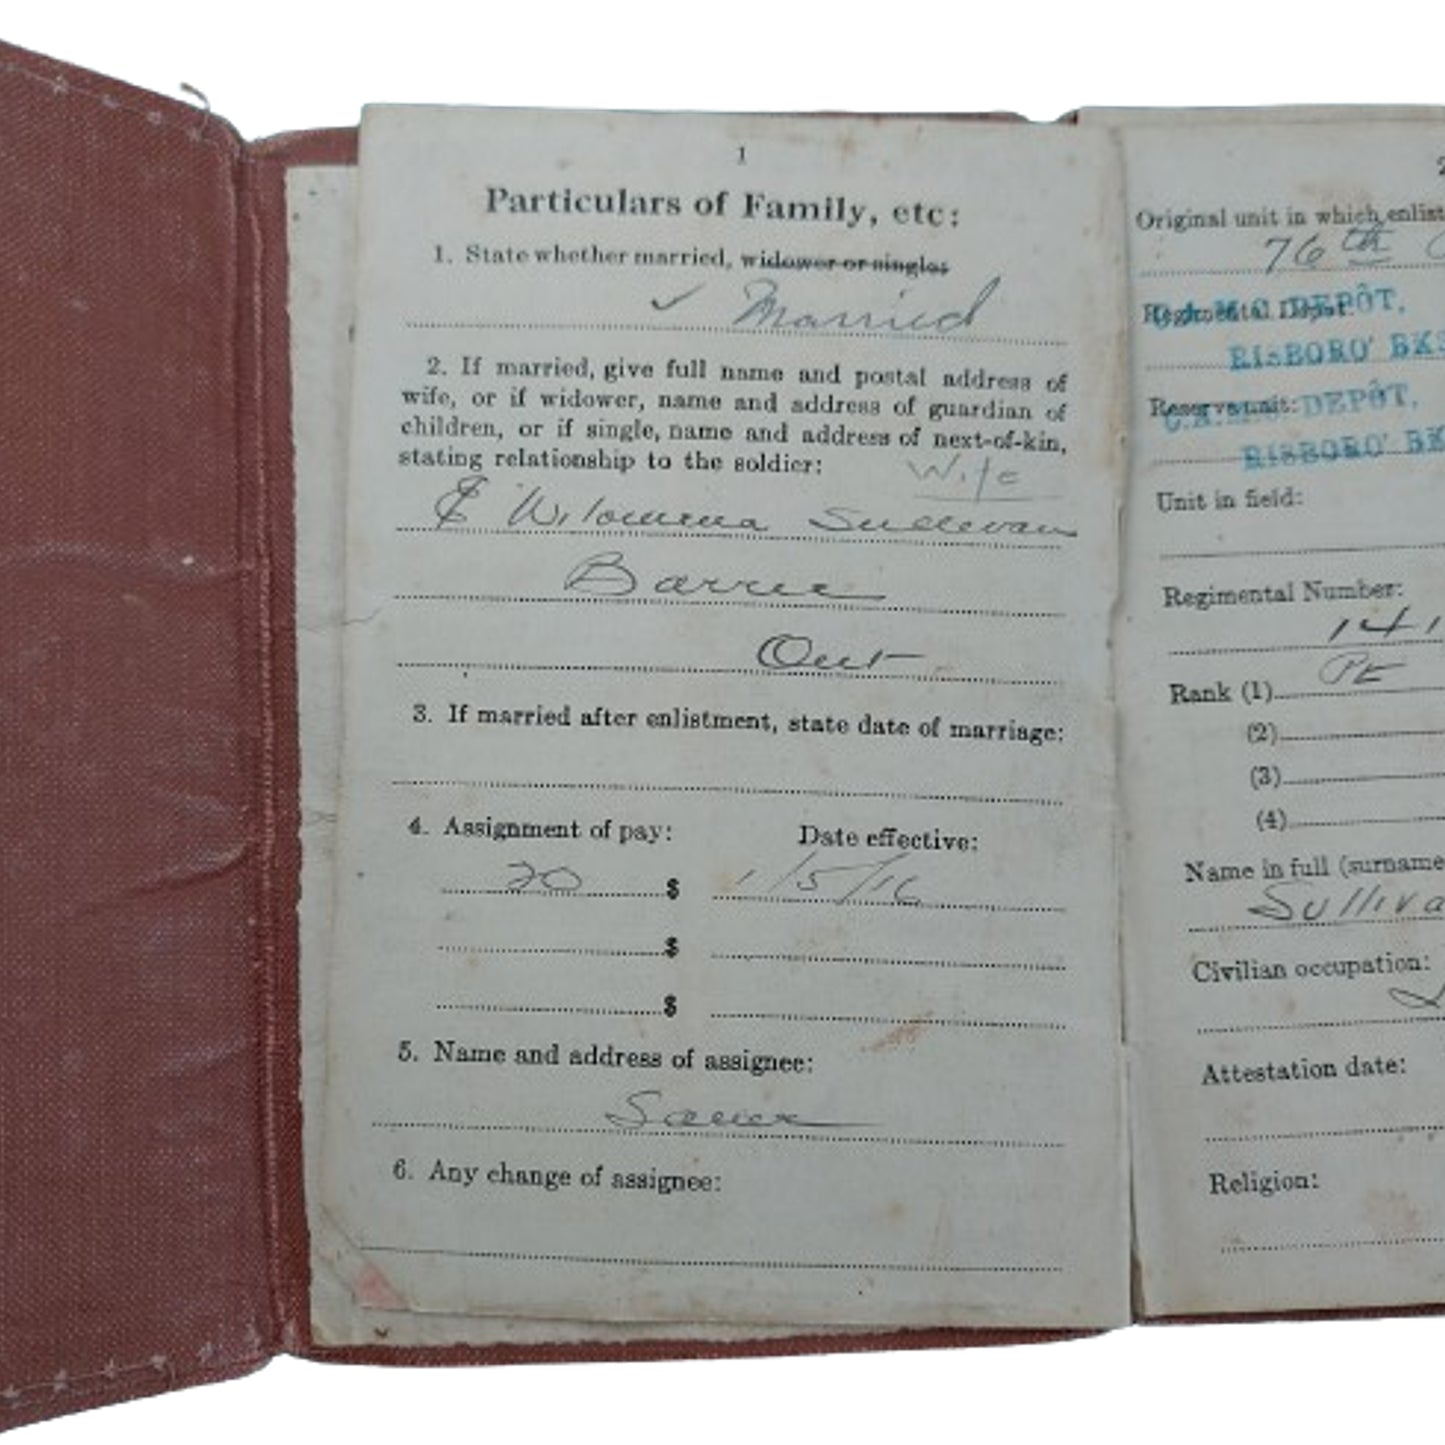 1
Particulars of Family, etc:
1. State whether married, widower or single:
✓ Married
2. If married, give full name and postal address of
wife, or if widower, name and address of guardian of
children, or if single, name and address of next-of-kin,
stating relationship to the soldier:
Wife
Sullivan
Barrie
Ont
3. If married after enlistment, state date of marriage:
4. Assignment of pay: Date effective:
20 $ 1/5/16
$
$
5. Name and address of assignee:
Same
6. Any change of assignee:
2
Original unit in which enlist
76th
Regimental Depot:
C.A.M.C. DEPÔT,
RISBORO' BKS
Reserve unit:
C.A.M.C. DEPÔT,
RISBORO' BK
Unit in field:
Regimental Number:
141
Rank (1) Pte
(2)
(3)
(4)
Name in full (surname
Sulliva
Civilian occupation:
Attestation date:
Religion: